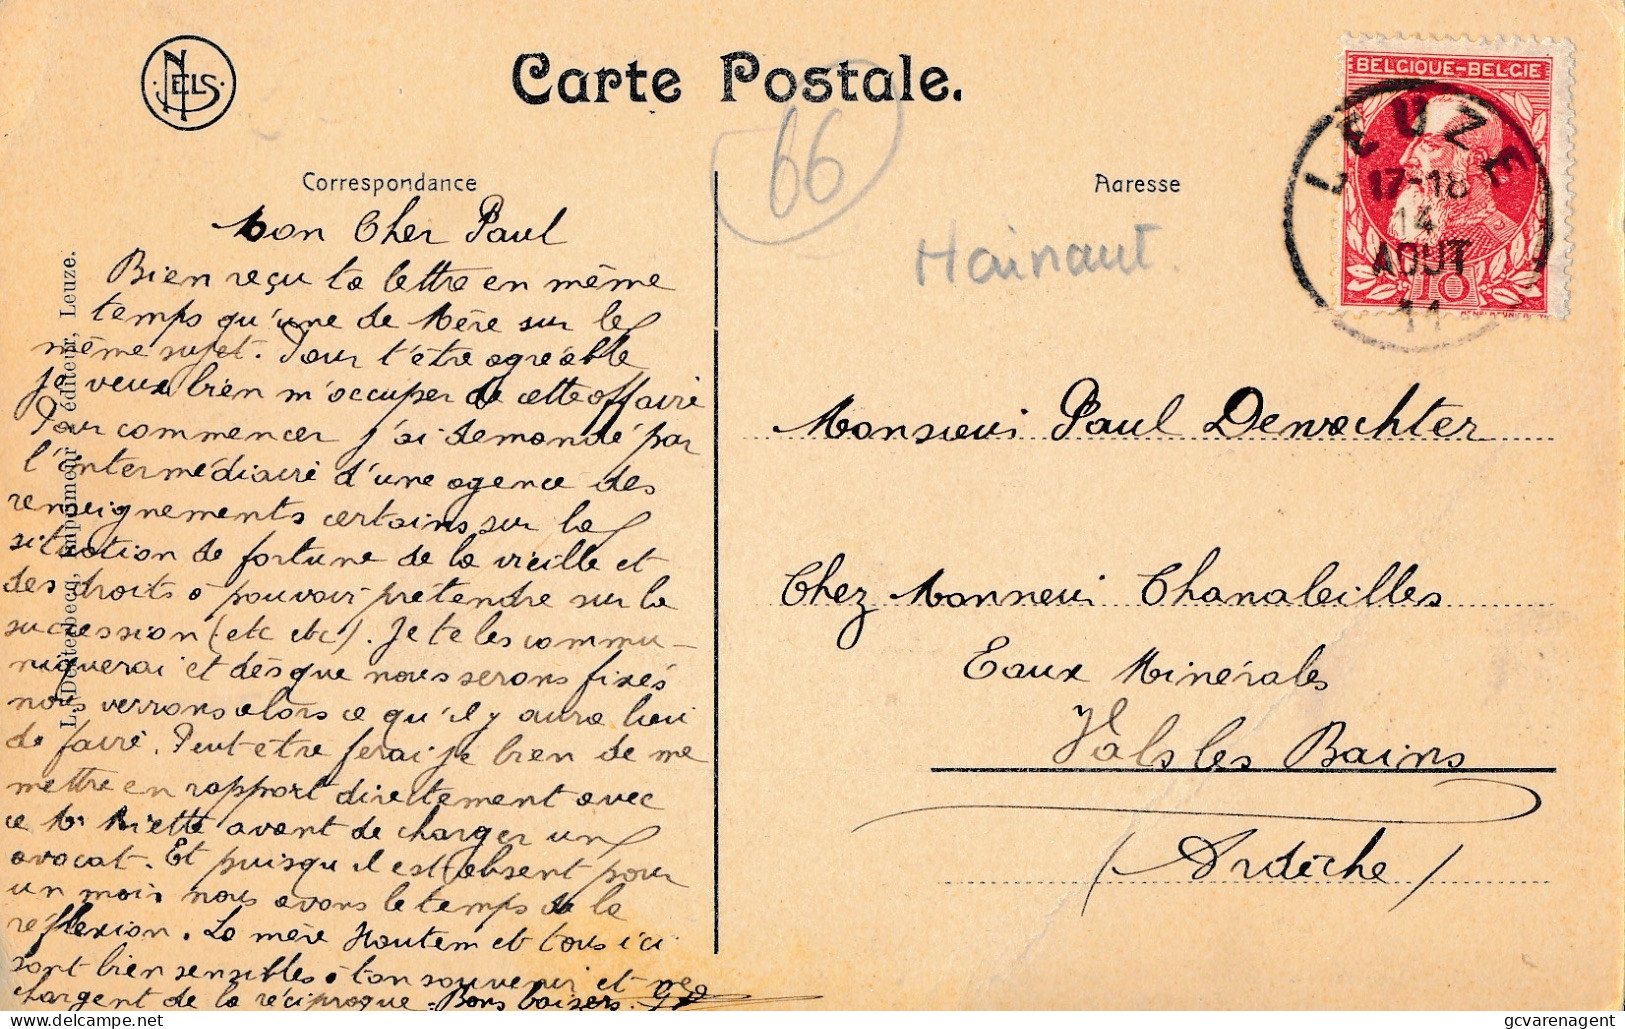 NELS
Carte Postale.
66
Correspondance
Adresse
Hainaut
BELGIQUE-BELGIE
10
LEUZE
17-18
14
AOUT
11
L. Deaterbecq, imprimeur éditeur, Leuze.
Mon Cher Paul
Bien reçu ta lettre en même
temps qu'une de Mère sur le
même sujet. Pour t'être agréable
je veux bien m'occuper de cette affaire
Pour commencer j'ai demandé par
l'intermédiaire d'une agence des
renseignements certains sur la
situation de fortune de la vieille et
des droits à pouvoir prétendre sur la
succession (etc etc). Je te les commu-
niquerai et dès que nous serons fixés
nous verrons alors ce qu'il y aura lieu
de faire. Peut-être ferai je bien de me
mettre en rapport directement avec
ce Mr Miette avant de charger un
avocat. Et puisqu'il est absent pour
un mois nous avons le temps de la
réflexion. La mère Hautem et tous ici
sont bien sensibles à ton souvenir et me
chargent de la réciproque. Bons baisers.
Monsieur Paul Dewachter
Chez Monsieur Chanaleilles
Eaux Minérales
Vals les Bains
(Ardèche)
gcvarenagent